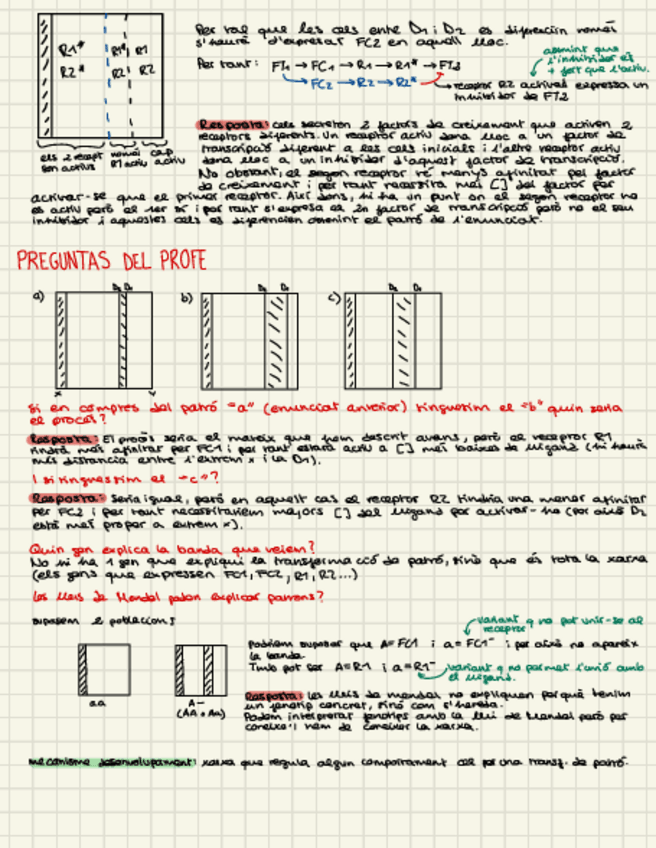 Per tal que les cels entre D1 i D2 es diferenciin només
s'haurà d'expresar FC2 en aquell lloc.
Per tant: FT1 → FC1 → R1 → R1* → FT2
FC2 → R2 → R2*
receptor R2 activat expressa un
inhibidor de FT2
assumint que
l'inhibidor és
+ fort que l'activ.
R1* R1* R1
R2* R2 R2
els 2 recept
són actius
només
R1 activ
cap
activ
Resposta: cels secreten 2 factors de creixement que activen 2
receptors diferents. Un receptor actiu dona lloc a un factor de
transcripció diferent a les cels inicials i l'altre receptor activ
dona lloc a un inhibidor d'aquest factor de transcripció.
No obstant, el segon receptor té menys afinitat pel factor
de creixement i per tant necessita més [] del factor per
activar-se que el primer receptor. Així doncs, hi ha un punt on el segon receptor no
és activ però el 1er sí i per tant s'expresa el 2n factor de transcripció però no el seu
inhibidor i aquestes cels es diferencien obtenint el patró de l'enunciat.
PREGUNTAS DEL PROFE
a) D2 D1 b) D2 D1 c) D2 D1
x y
Si en comptes del patró "a" (enunciat anterior) tinguessim el "b" quin seria
el procés?
Resposta: El procés seria el mateix que hem descrit abans, però el receptor R1
tindrà més afinitat per FC1 i per tant estarà activ a [] més baixes de lligand (hi haurà
més distancia entre l'extrem x i la D1).
I si tinguessim el "c"?
Resposta: Seria igual, però en aquest cas el receptor R2 tindria una menor afinitat
per FC2 i per tant necessitariem majors [] del lligand per activar-ho (per això D2
està més proper a extrem x).
Quin gen explica la banda que veiem?
No hi ha 1 gen que expliqui la transformació de patró, sinó que és tota la xarxa
(els gens que expressen FC1, FC2, R1, R2...)
Les lleis de Mendel poden explicar patrons?
suposem 2 poblacions
aa
A-
(AA o Aa)
variant q no pot unir-se al
receptor
Podriem suposar que A=FC1 i a=FC1⁻ i per això no apareix
la banda.
Tmb pot ser A=R1 i a=R1⁻ variant q no permet l'unió amb
el lligand.
Resposta: les lleis de mendel no expliquen perquè tenim
un fenotip concret, sinó com s'hereda.
Podem interpretar fenotips amb la llei de Mendel però per
conèixe'l hem de conèixer la xarxa.
mecanisme desenvolupament: xarxa que regula algun comportament cel per una transf. de patró.